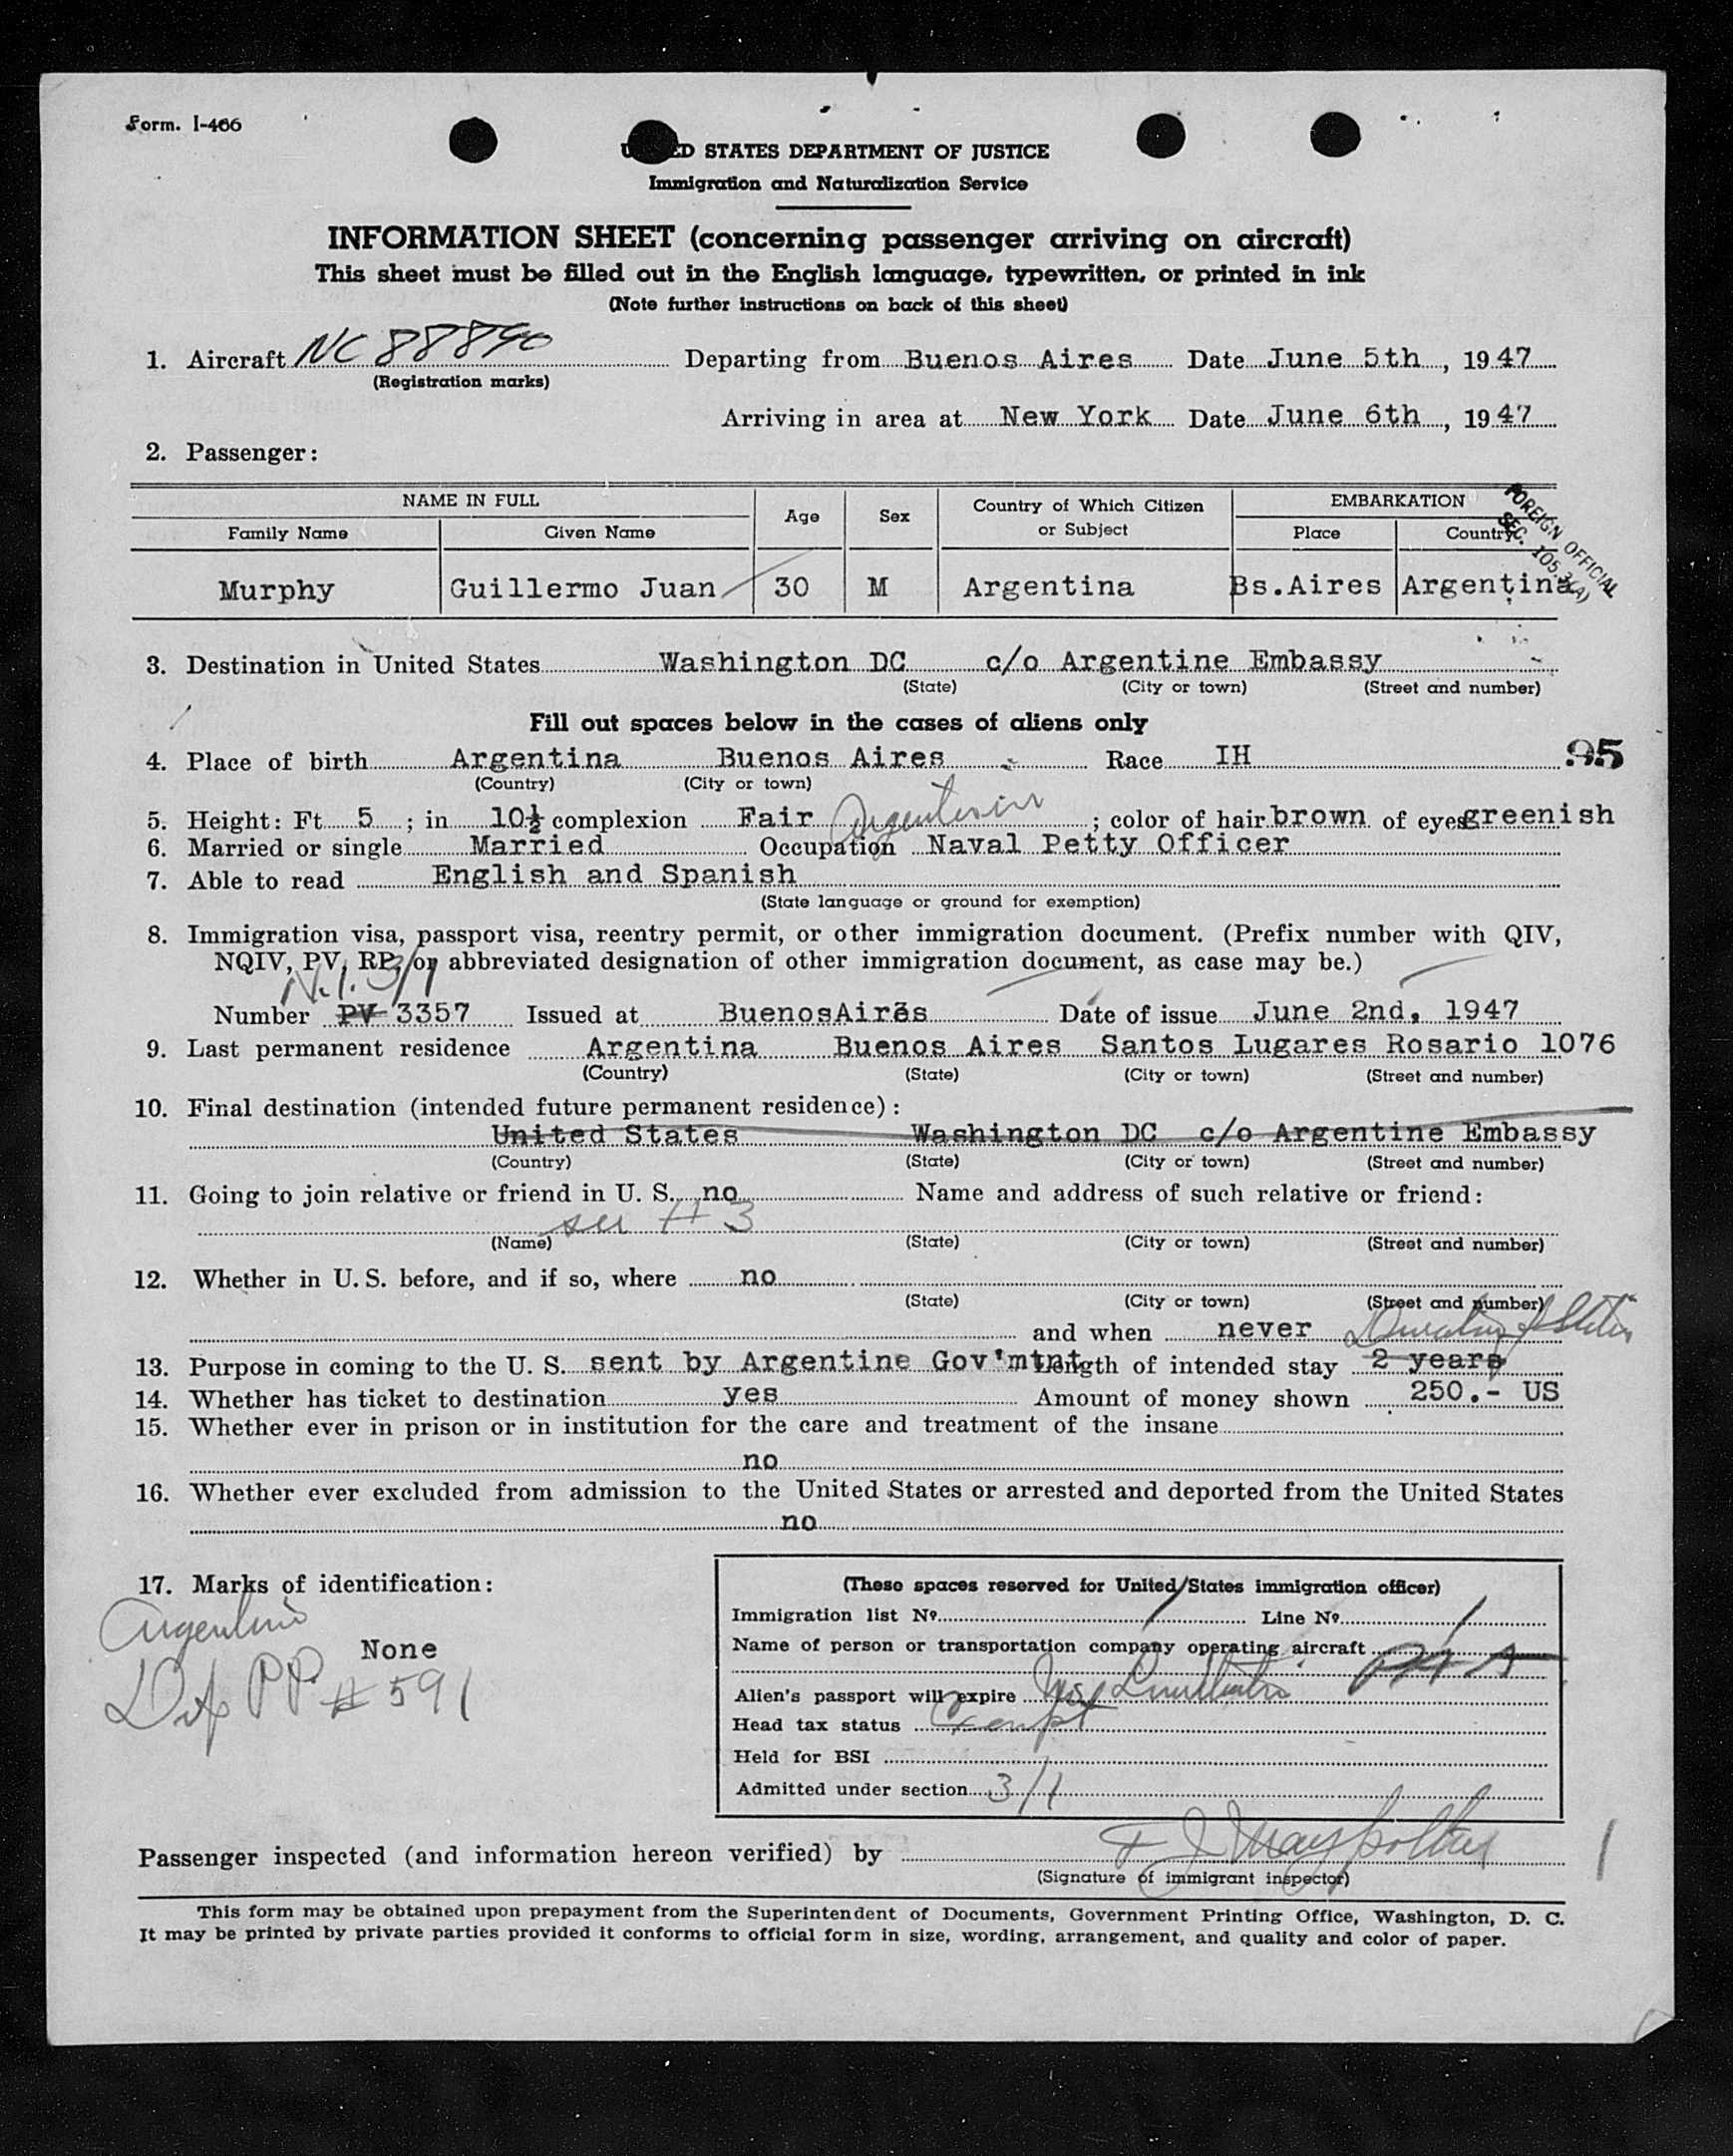 Form. I-466
UNITED STATES DEPARTMENT OF JUSTICE
Immigration and Naturalization Service
INFORMATION SHEET (concerning passenger arriving on aircraft)
This sheet must be filled out in the English language, typewritten, or printed in ink
(Note further instructions on back of this sheet)
1. Aircraft NC 88890 Departing from Buenos Aires Date June 5th, 1947
(Registration marks)
Arriving in area at New York Date June 6th, 1947
2. Passenger:
NAME IN FULL Age Sex Country of Which Citizen or Subject EMBARKATION
Family Name Given Name Place Country
FOREIGN OFFICIAL
SEC. 105.3(A)
Murphy Guillermo Juan 30 M Argentina Bs.Aires Argentina
3. Destination in United States Washington DC c/o Argentine Embassy
(State) (City or town) (Street and number)
Fill out spaces below in the cases of aliens only
4. Place of birth Argentina Buenos Aires Race IH 95
(Country) (City or town)
5. Height: Ft 5; in 10½ complexion Fair; color of hair brown of eyes greenish
Argentenin
6. Married or single Married Occupation Naval Petty Officer
7. Able to read English and Spanish
(State language or ground for exemption)
8. Immigration visa, passport visa, reentry permit, or other immigration document. (Prefix number with QIV,
NQIV, PV, RP, or abbreviated designation of other immigration document, as case may be.)
N.I. 3/1
Number PV 3357 Issued at BuenosAires Date of issue June 2nd, 1947
9. Last permanent residence Argentina Buenos Aires Santos Lugares Rosario 1076
(Country) (State) (City or town) (Street and number)
10. Final destination (intended future permanent residence):
United States Washington DC c/o Argentine Embassy
(Country) (State) (City or town) (Street and number)
11. Going to join relative or friend in U. S. no Name and address of such relative or friend:
see # 3
(Name) (State) (City or town) (Street and number)
12. Whether in U. S. before, and if so, where no
(State) (City or town) (Street and number)
and when never Duration of Status
13. Purpose in coming to the U. S. sent by Argentine Gov'mtnt Length of intended stay 2 years
14. Whether has ticket to destination yes Amount of money shown 250.- US
15. Whether ever in prison or in institution for the care and treatment of the insane
no
16. Whether ever excluded from admission to the United States or arrested and deported from the United States
no
17. Marks of identification:
None
Dip PP # 591
(These spaces reserved for United States immigration officer)
Immigration list No. 1 Line No. 1
Name of person or transportation company operating aircraft P A A
Alien's passport will expire
Head tax status Exempt
Held for BSI
Admitted under section 3/1
Passenger inspected (and information hereon verified) by
(Signature of immigrant inspector)
1
This form may be obtained upon prepayment from the Superintendent of Documents, Government Printing Office, Washington, D. C.
It may be printed by private parties provided it conforms to official form in size, wording, arrangement, and quality and color of paper.